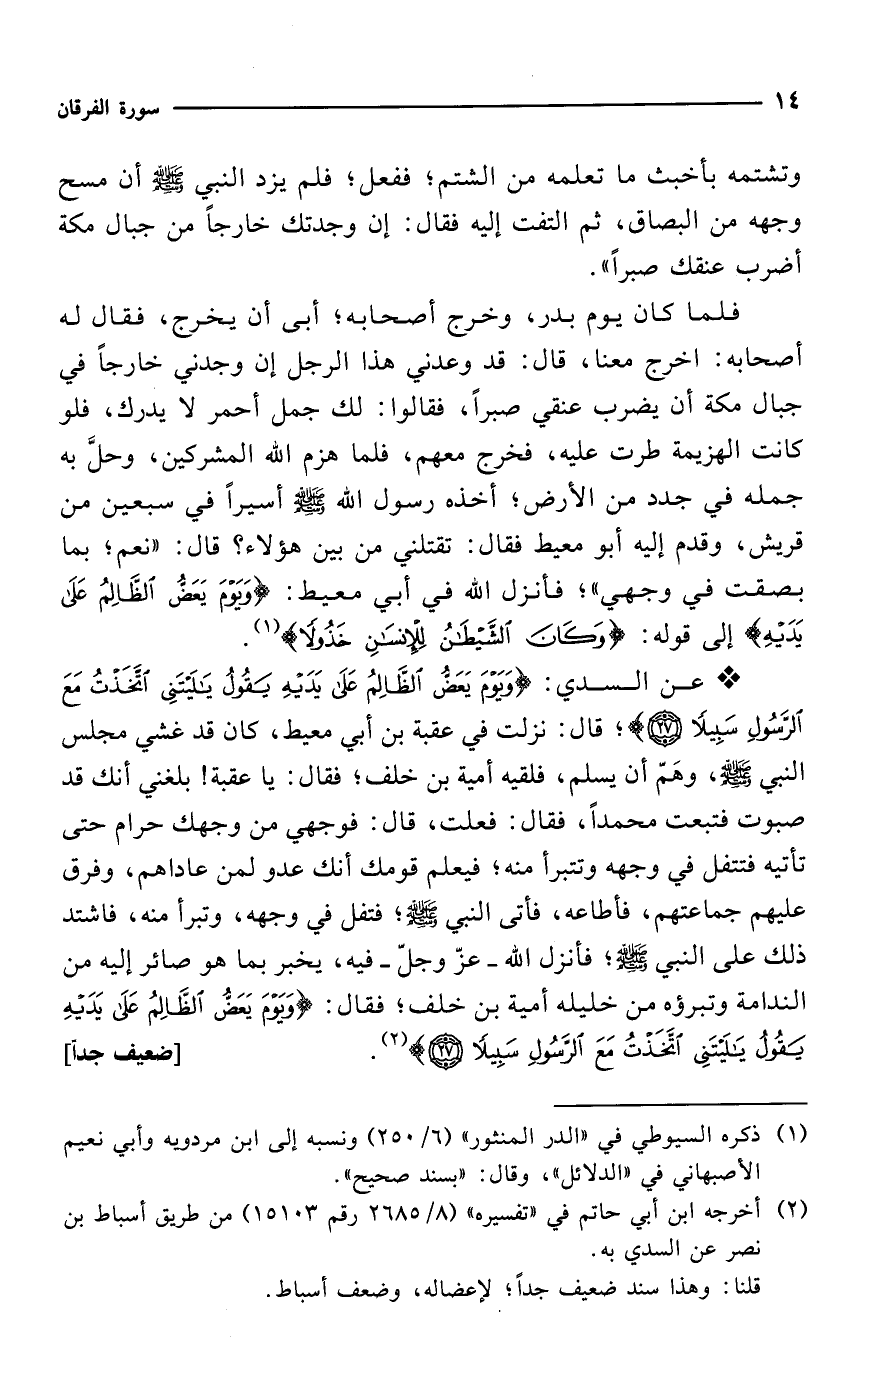 ١٤ سورة الفرقان
وتشتمه بأخبث ما تعلمه من الشتم؛ ففعل؛ فلم يزد النبي ﷺ أن مسح
وجهه من البصاق، ثم التفت إليه فقال: إن وجدتك خارجاً من جبال مكة
أضرب عنقك صبراً».
فلما كان يوم بدر، وخرج أصحابه؛ أبى أن يخرج، فقال له
أصحابه: اخرج معنا، قال: قد وعدني هذا الرجل إن وجدني خارجاً في
جبال مكة أن يضرب عنقي صبراً، فقالوا: لك جمل أحمر لا يدرك، فلو
كانت الهزيمة طرت عليه، فخرج معهم، فلما هزم الله المشركين، وحلَّ به
جمله في جدد من الأرض؛ أخذه رسول الله ﷺ أسيراً في سبعين من
قريش، وقدم إليه أبو معيط فقال: تقتلني من بين هؤلاء؟ قال: «نعم؛ بما
بصقت في وجهي»؛ فأنزل الله في أبي معيط: ﴿وَيَوْمَ يَعَضُّ ٱلظَّالِمُ عَلَىٰ
يَدَيْهِ﴾ إلى قوله: ﴿وَكَانَ ٱلشَّيْطَٰنُ لِلْإِنسَٰنِ خَذُولًا﴾(١).
❖ عن السدي: ﴿وَيَوْمَ يَعَضُّ ٱلظَّالِمُ عَلَىٰ يَدَيْهِ يَقُولُ يَٰلَيْتَنِى ٱتَّخَذْتُ مَعَ
ٱلرَّسُولِ سَبِيلًا ٢٧﴾؛ قال: نزلت في عقبة بن أبي معيط، كان قد غشي مجلس
النبي ﷺ، وهَمّ أن يسلم، فلقيه أمية بن خلف؛ فقال: يا عقبة! بلغني أنك قد
صبوت فتبعت محمداً، فقال: فعلت، قال: فوجهي من وجهك حرام حتى
تأتيه فتتفل في وجهه وتتبرأ منه؛ فيعلم قومك أنك عدو لمن عاداهم، وفرق
عليهم جماعتهم، فأطاعه، فأتى النبي ﷺ؛ فتفل في وجهه، وتبرأ منه، فاشتد
ذلك على النبي ﷺ؛ فأنزل الله ـ عزّ وجلّ ـ فيه، يخبر بما هو صائر إليه من
الندامة وتبرؤه من خليله أمية بن خلف؛ فقال: ﴿وَيَوْمَ يَعَضُّ ٱلظَّالِمُ عَلَىٰ يَدَيْهِ
يَقُولُ يَٰلَيْتَنِى ٱتَّخَذْتُ مَعَ ٱلرَّسُولِ سَبِيلًا ٢٧﴾(٢). [ضعيف جداً]
(١) ذكره السيوطي في «الدر المنثور» (٦/ ٢٥٠) ونسبه إلى ابن مردويه وأبي نعيم
الأصبهاني في «الدلائل»، وقال: «بسند صحيح».
(٢) أخرجه ابن أبي حاتم في «تفسيره» (٨/ ٢٦٨٥ رقم ١٥١٠٣) من طريق أسباط بن
نصر عن السدي به.
قلنا: وهذا سند ضعيف جداً؛ لإعضاله، وضعف أسباط.